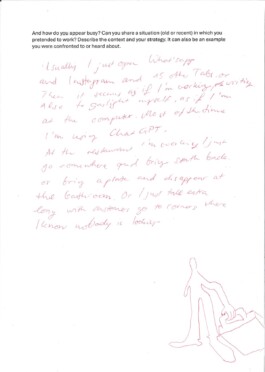 And how do you appear busy? Can you share a situation (old or recent) in which you
pretended to work? Describe the context and your strategy. It can also be an example
you were confronted to or heard about.
Usually I just open Whatsapp
and Instagram and as other Tabs or
Then it seems as if I'm working, as
at the computer. Most of the time
I'm using ChatGPT.
At the restaurant I'm working I just
go somewhere and bring back
or bring a plate and disappear at
the bathroom. Or I just talk extra
long with customer go to corners where
I know nobody is